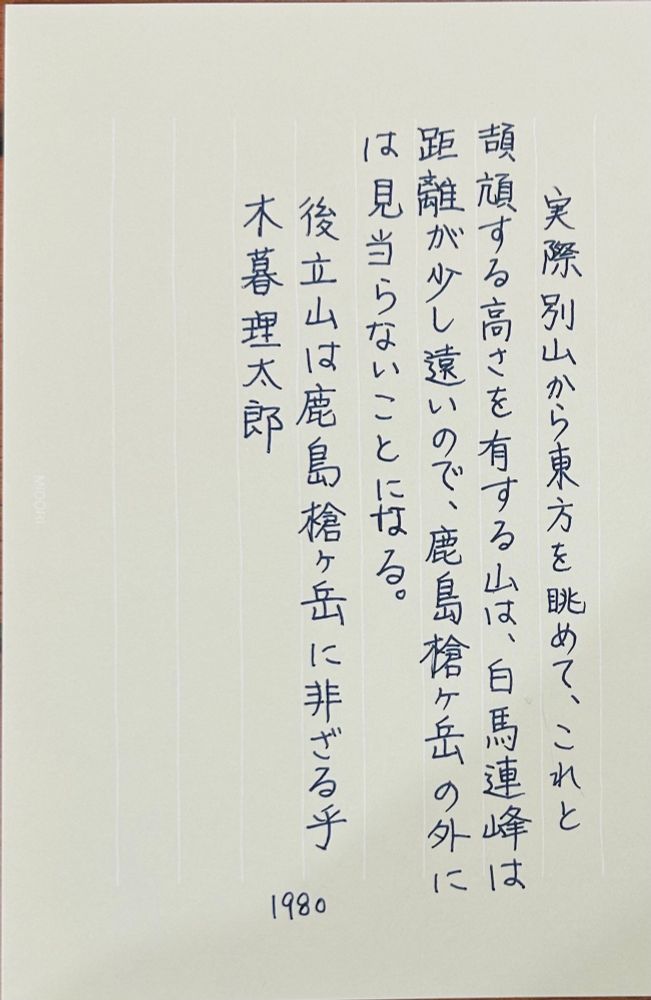 実際別山から東方を眺めて、これと
頡頏する高さを有する山は、白馬連峰は
距離が少し遠いので、鹿島槍ヶ岳の外に
は見当らないことになる。
後立山は鹿島槍ヶ岳に非ざる乎
木暮理太郎
1980
MIDORI